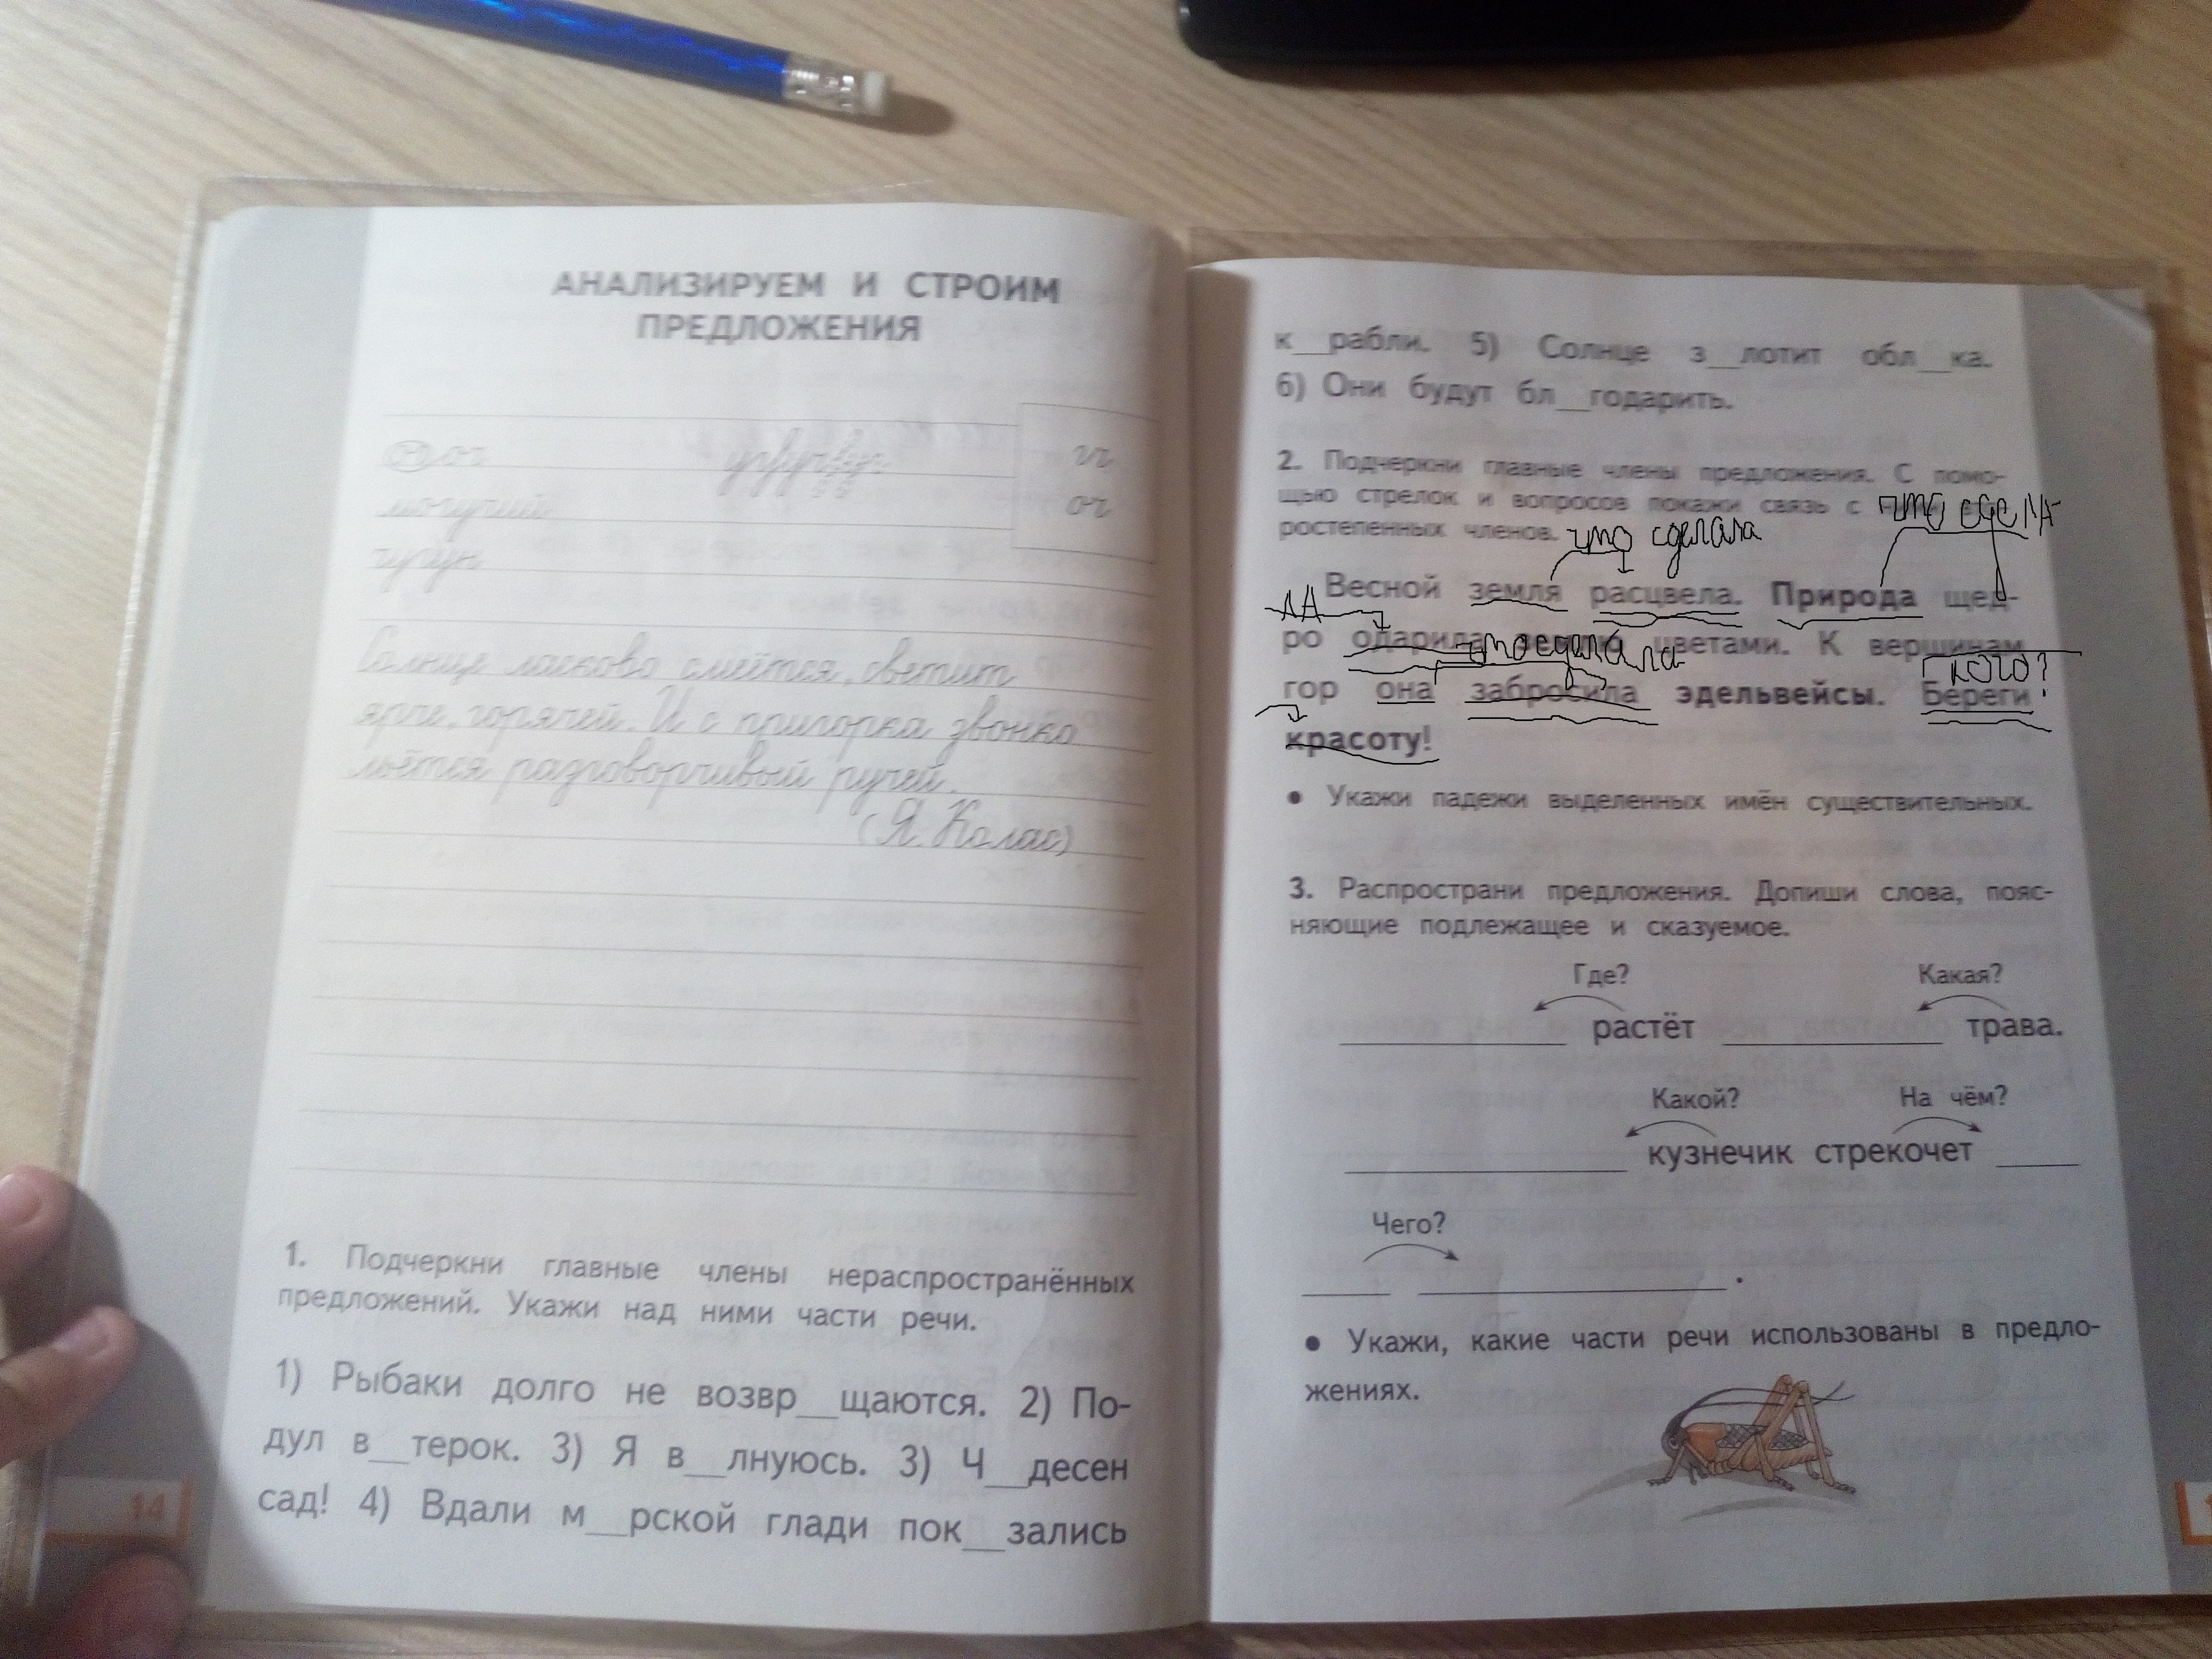 АНАЛИЗИРУЕМ И СТРОИМ
ПРЕДЛОЖЕНИЯ
гч
могучий
оч
чугун
Солнце ласково смеётся, светит
ярче, горячей. И с пригорка звонко
льётся разговорчивый ручей.
(Я. Колас)
1. Подчеркни главные члены нераспространённых
предложений. Укажи над ними части речи.
1) Рыбаки долго не возвр__щаются. 2) По-
дул в__терок. 3) Я в__лнуюсь. 3) Ч__десен
сад! 4) Вдали м__рской глади пок__зались
14
к__рабли. 5) Солнце з__лотит обл__ка.
6) Они будут бл__годарить.
2. Подчеркни главные члены предложения. С помо-
щью стрелок и вопросов покажи связь с
что сдел
ростепенных членов.
что сделала
Весной земля расцвела. Природа щед-
ла
ро одарила землю цветами. К вершинам
что сделала
кого?
гор она забросила эдельвейсы. Береги
красоту!
• Укажи падежи выделенных имён существительных.
3. Распространи предложения. Допиши слова, пояс-
няющие подлежащее и сказуемое.
Где? Какая?
____ растёт ____ трава.
Какой? На чём?
____ кузнечик стрекочет ____
Чего?
____ ____.
• Укажи, какие части речи использованы в предло-
жениях.